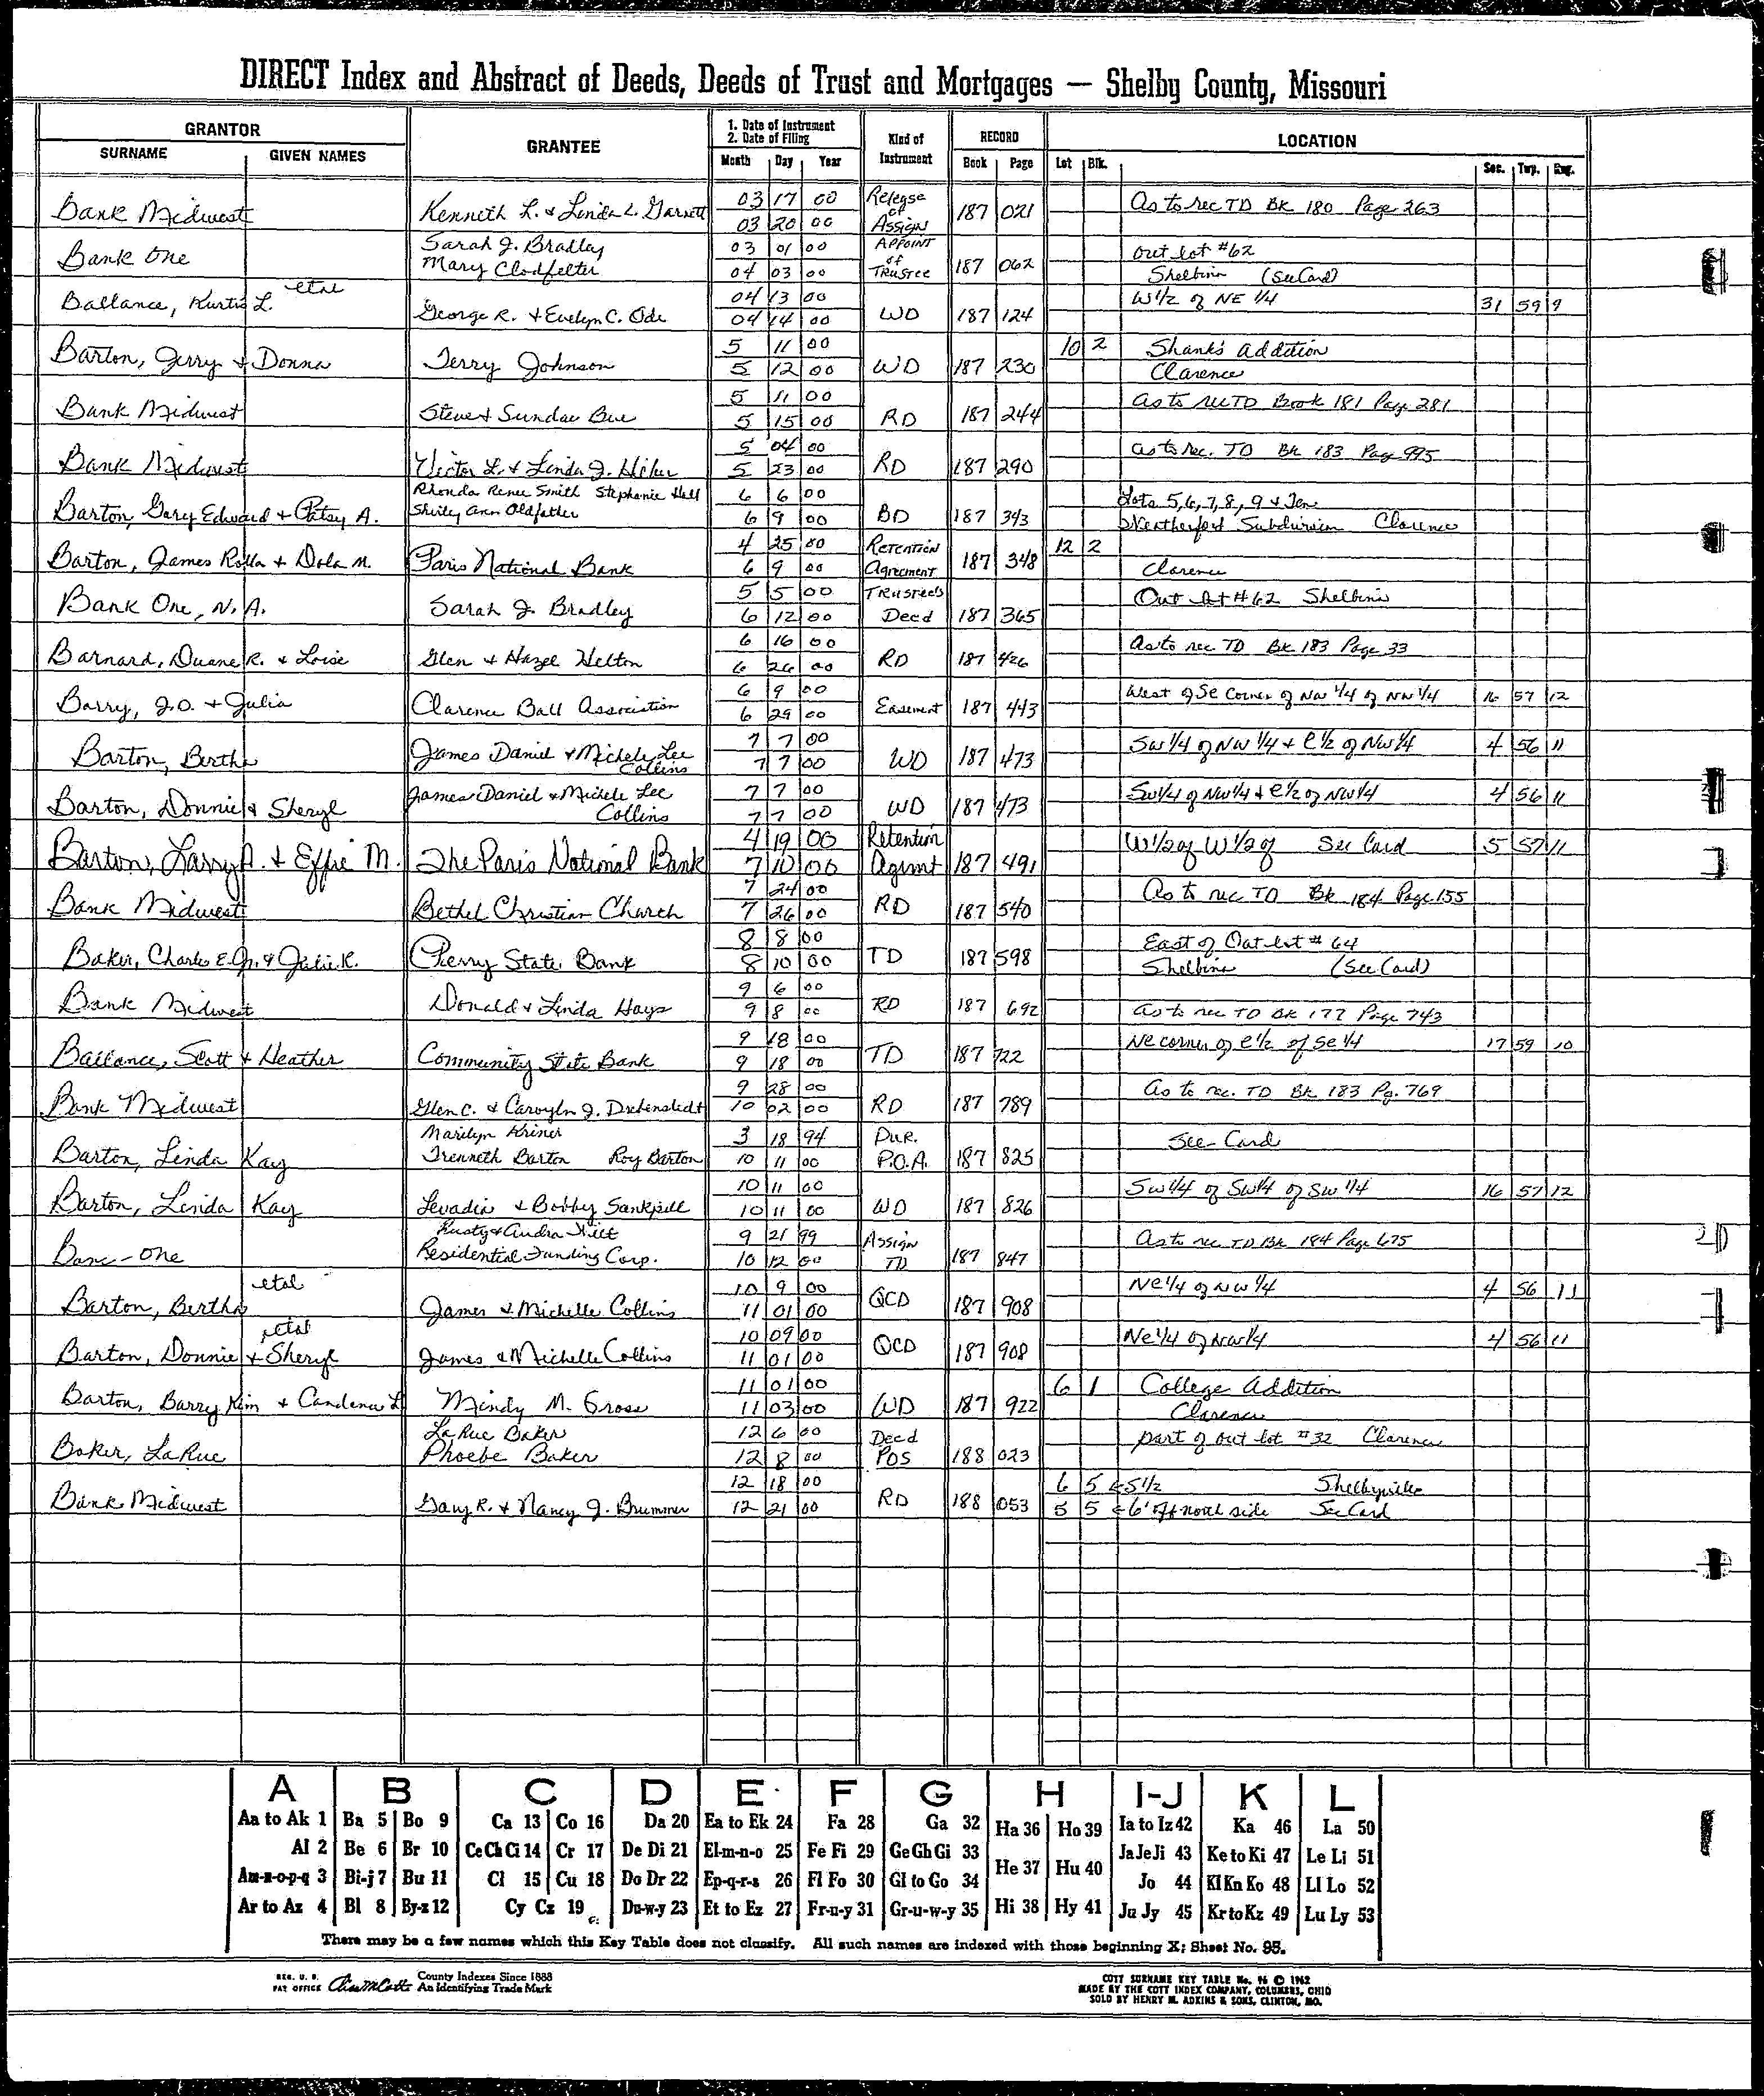 DIRECT Index and Abstract of Deeds, Deeds of Trust and Mortgages — Shelby County, Missouri
GRANTOR GRANTEE 1. Date of Instrument 2. Date of Filing Kind of Instrument RECORD LOCATION
SURNAME GIVEN NAMES Month Day Year Book Page Lot Blk. Sec. Twp. Rng.
Bank Midwest Kenneth L. & Linda L. Garnett 03 17 00 Release of Assign 187 021 As to rec TD Bk 180 Page 263
03 20 00
Bank One Sarah J. Bradley 03 01 00 Appoint of Trustee 187 062 Out lot #62
Mary Clodfelter 04 03 00 Shelbina (See Card)
Ballance, Kurtis L. etal George R. & Evelyn C. Ode 04 13 00 WD 187 124 W 1/2 of NE 1/4 31 59 9
04 14 00
Barton, Jerry & Donna Terry Johnson 5 11 00 WD 187 230 10 2 Shank's Addition
5 12 00 Clarence
Bank Midwest Steve & Sundae Bue 5 11 00 RD 187 244 As to rec TD Book 181 Page 281
5 15 00
Bank Midwest Victor L. & Linda J. 5 04 00 RD 187 290 As to rec. TD Bk 183 Page 995
5 23 00
Barton, Gary Edward & Patsy A. Rhonda Renee Smith Stephanie Hall 6 6 00 BD 187 343 Lots 5,6,7,8,9 & Ten
Shirley Ann Oldfather 6 9 00 Weatherford Subdivision Clarence
Barton, James Rolla & Dola M. Paris National Bank 4 25 00 Retention Agreement 187 348 12 2
6 9 00 Clarence
Bank One, N.A. Sarah J. Bradley 5 5 00 Trustees Deed 187 365 Out lot #62 Shelbina
6 12 00
Barnard, Duane R. & Loise Glen & Hazel Helton 6 16 00 RD 187 426 As to rec TD Bk 183 Page 33
6 26 00
Barry, J.O. & Julia Clarence Ball Association 6 9 00 Easement 187 443 West of SE Corner of NW 1/4 of NW 1/4 16 57 12
6 29 00
Barton, Bertha James Daniel & Michele Lee Collins 7 7 00 WD 187 473 SW 1/4 of NW 1/4 & E 1/2 of NW 1/4 4 56 11
7 7 00
Barton, Donnie & Sheryl James Daniel & Michele Lee Collins 7 7 00 WD 187 473 SW 1/4 of NW 1/4 & E 1/2 of NW 1/4 4 56 11
7 7 00
Barton, Larry A. & Effie M. The Paris National Bank 4 19 00 Retention Agrmt 187 491 W 1/2 of W 1/2 of See Card 5 57 11
7 10 00
Bank Midwest Bethel Christian Church 7 24 00 RD 187 540 As to rec TD Bk 184 Page 155
7 26 00
Baker, Charles E. Jr. & Julie K. Perry State Bank 8 8 00 TD 187 598 East of Out lot # 64
8 10 00 Shelbina (See Card)
Bank Midwest Donald & Linda Hays 9 6 00 RD 187 692
9 8 00 As to rec TD Bk 177 Page 743
Ballance, Scott & Heather Community State Bank 9 18 00 TD 187 722 NE corner of E 1/2 of SE 1/4 17 59 10
9 18 00
Bank Midwest Glen C. & Carolyn J. 9 28 00 RD 187 789 As to rec. TD Bk 183 Pg. 769
10 02 00
Barton, Linda Kay Marilyn Kriner 3 18 94 Dur. P.O.A. 187 825 See Card
Trenneth Barton Roy Barton 10 11 00
Barton, Linda Kay Levadia & Bobby Sankpill 10 11 00 WD 187 826 SW 1/4 of SW 1/4 of SW 1/4 16 57 12
10 11 00
Banc-One Rusty & Andra 9 21 99 Assign TD 187 847 As to rec TD Bk 184 Page 675
Residential Funding Corp. 10 12 00
Barton, Bertha etal James & Michelle Collins 10 9 00 QCD 187 908 NE 1/4 of NW 1/4 4 56 11
11 01 00
Barton, Donnie & Sheryl etal James & Michelle Collins 10 09 00 QCD 187 908 NE 1/4 of NW 1/4 4 56 11
11 01 00
Barton, Barry Kim & Candence L Mindy M. Grose 11 01 00 WD 187 922 6 1 College Addition
11 03 00 Clarence
Baker, LaRue LaRue Baker 12 6 00 Deed POS 188 023 part of out lot #32 Clarence
Phoebe Baker 12 8 00
Bank Midwest Gary R. & Nancy J. Brummer 12 18 00 RD 188 053 6 5 S 1/2 Shelbyville
12 21 00 5 5 6' off north side See Card
A B C D E F G H I-J K L
Aa to Ak 1 Ba 5 Bo 9 Ca 13 Co 16 Da 20 Ea to Ek 24 Fa 28 Ga 32 Ha 36 Ho 39 Ia to Iz 42 Ka 46 La 50
Al 2 Be 6 Br 10 Ce Ch Ci 14 Cr 17 De Di 21 El-m-n-o 25 Fe Fi 29 Ge Gh Gi 33 He 37 Hu 40 Ja Je Ji 43 Ke to Ki 47 Le Li 51
Am-n-o-p-q 3 Bi-j 7 Bu 11 Cl 15 Cu 18 Do Dr 22 Ep-q-r-s 26 Fl Fo 30 Gl to Go 34 Jo 44 Kl Kn Ko 48 Ll Lo 52
Ar to Az 4 Bl 8 By-z 12 Cy Cz 19 Du-w-y 23 Et to Ez 27 Fr-u-y 31 Gr-u-w-y 35 Hi 38 Hy 41 Ju Jy 45 Kr to Kz 49 Lu Ly 53
There may be a few names which this Key Table does not classify. All such names are indexed with those beginning X; Sheet No. 95.
REG. U. S. PAT OFFICE County Indexes Since 1888 An Identifying Trade Mark
COTT SURNAME KEY TABLE No. 96 © 1962
MADE BY THE COTT INDEX COMPANY, COLUMBUS, OHIO
SOLD BY HENRY M. ADKINS & SONS, CLINTON, MO.